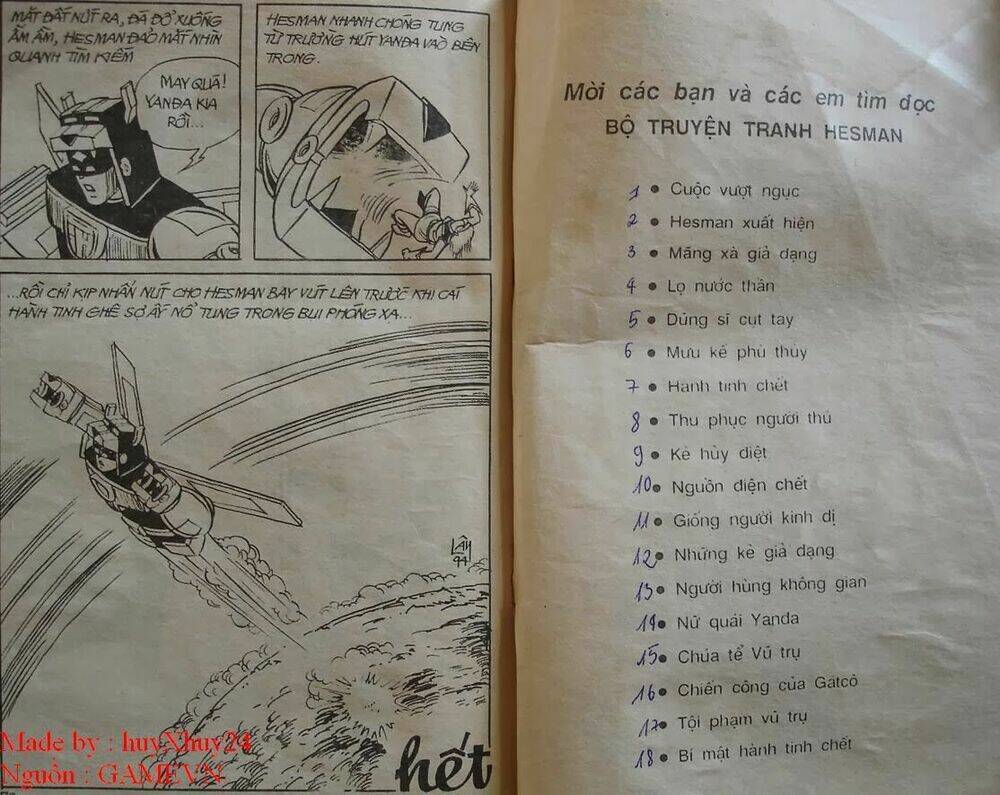 MẶT ĐẤT NỨT RA, ĐÁ ĐỔ XUỐNG
ẦM ẦM, HESMAN ĐẢO MẮT NHÌN
QUANH TÌM KIẾM
MAY QUÁ!
YANDA KIA
RỒI...
HESMAN NHANH CHÓNG TUNG
TỪ TRƯỜNG HÚT YANDA VÀO BÊN
TRONG.
...RỒI CHỈ KỊP NHẤN NÚT CHO HESMAN BAY VÚT LÊN TRƯỚC KHI CÁI
HÀNH TINH GHÊ SỢ ẤY NỔ TUNG TRONG BỤI PHÓNG XẠ...
LÂN
94
hết
Made by : huyXhuy24
Nguồn : GAMEVN
Mời các bạn và các em tìm đọc
BỘ TRUYỆN TRANH HESMAN
1 • Cuộc vượt ngục
2 • Hesman xuất hiện
3 • Mãng xà giả dạng
4 • Lọ nước thần
5 • Dũng sĩ cụt tay
6 • Mưu kế phù thủy
7 • Hành tinh chết
8 • Thu phục người thú
9 • Kẻ hủy diệt
10 • Nguồn điện chết
11 • Giống người kinh dị
12 • Những kẻ giả dạng
13 • Người hùng không gian
14 • Nữ quái Yanda
15 • Chúa tể Vũ trụ
16 • Chiến công của Gátcô
17 • Tội phạm vũ trụ
18 • Bí mật hành tinh chết